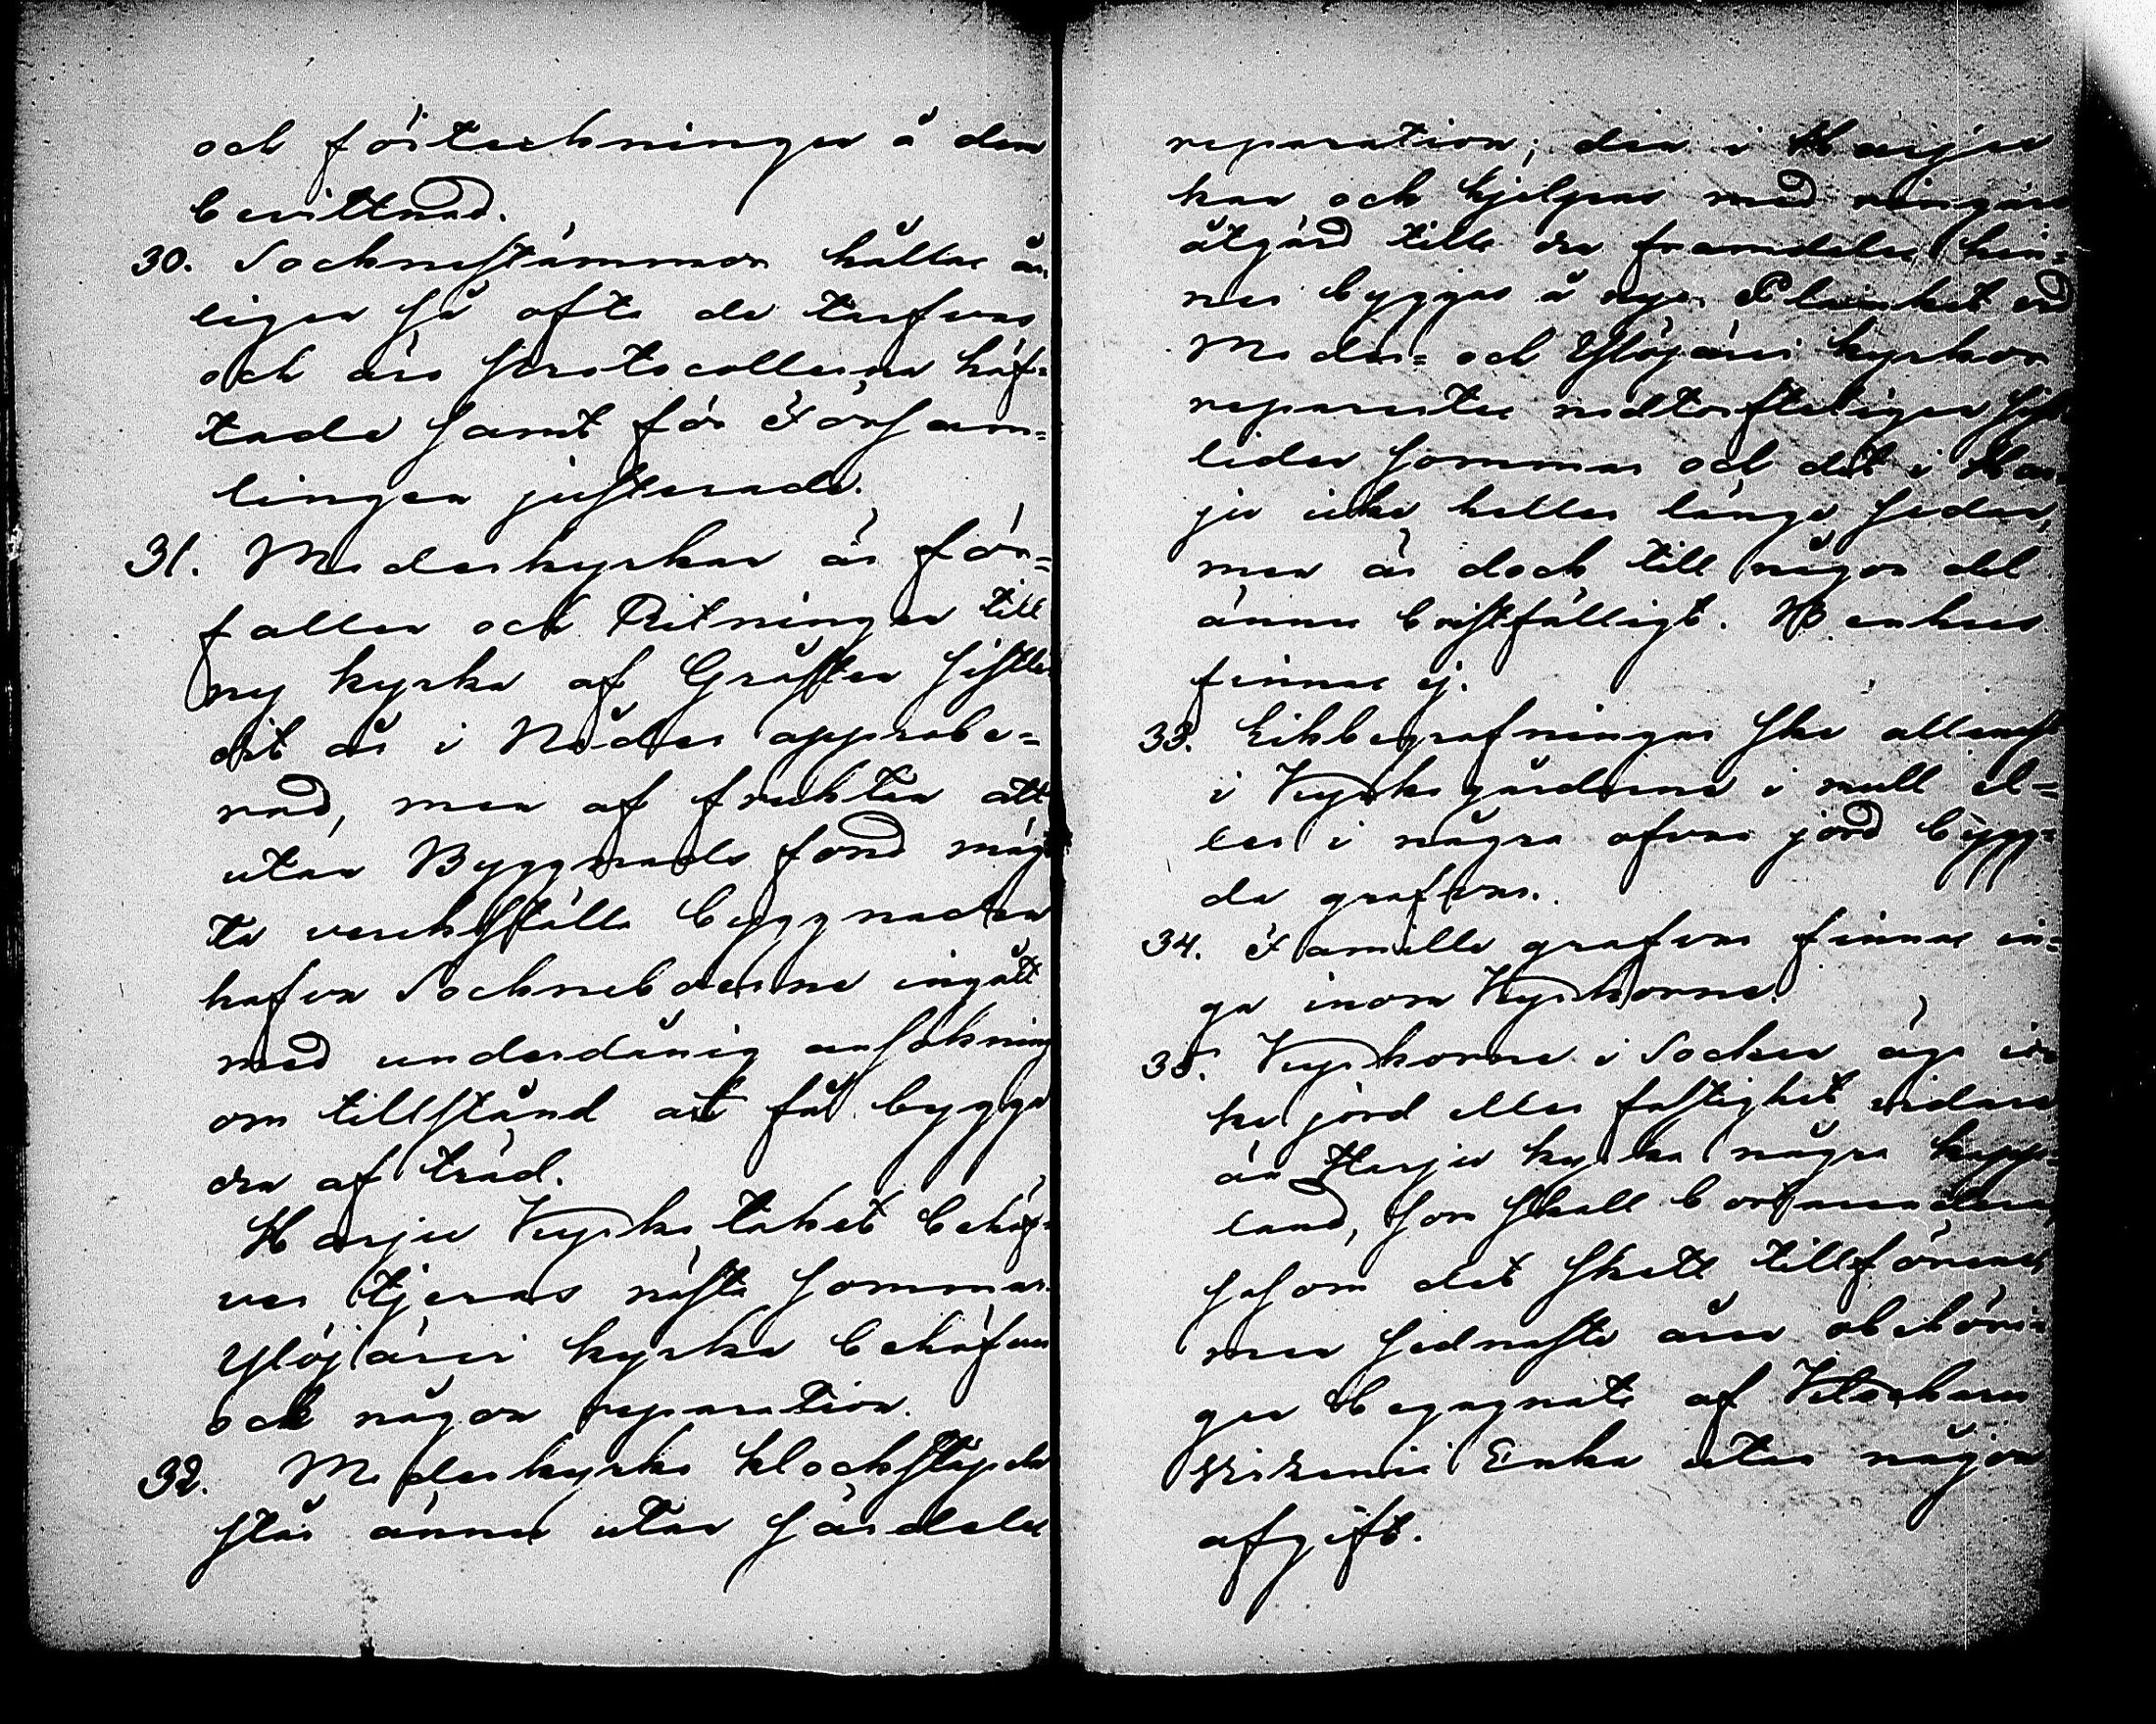 och förteckningen å den
bevittnad.
30. Sockneſtämmor hållas år
ligen ſå ofta de tarfvas
och äro ſprotocollerna häf=
tade ſamt för Förſam=
lingen juſterade.
31. Moderkyrkan är för=
fallen och Ritningen till
ny kyrka af Gråſten ſiſtle
dit år i Nåder approbe=
rad, men af fruktan att
utan Byggnads fond mäg
ta verckſtälla byggnaden
hafva Sockneboerne ingått
med underdånig anſökning
om tillſtånd att få bygga
den af träd.
Harju Kyrko taket behöf=
ver tjeras näſta ſommar.
Ylöjärvi kyrka behöfver
ock någon reparation.
32. Moderkyrko klockſtapeln
ſtår ännu utan ſärdeles
reparation; den i Harju
kan och hjelpas med ringare
åtgärd tills den framdeles hin=
ner byggas å nyo. Planket vid
Moder= och Ylöjärvi kyrkor
reparertes nödtorfteligen ſiſt
liden ſommar och det i Har
ju icke heller länge ſedan,
men är dock till någon del
ännu briſtfälligt. Benhus
finnas ej.
33. Likbegrafningar ſke allenaſt
i Kyrkogårdarne i mull el=
ler i några ofvan jord bygg=
da grafvar.
34. Famille grafvar finnas in=
ga inom Kyrkorne.
35. Kyrkorne i Socken äga ic
ke jord eller faſtighet vidare
än Harju kyrka några kapp=
land, ſom ſkall bortarenderas,
ſåſom det ſkett tillförene
men ſednaſte åren obehöri=
gen begagnats af Klockaren
Enka utan någon
afgift.